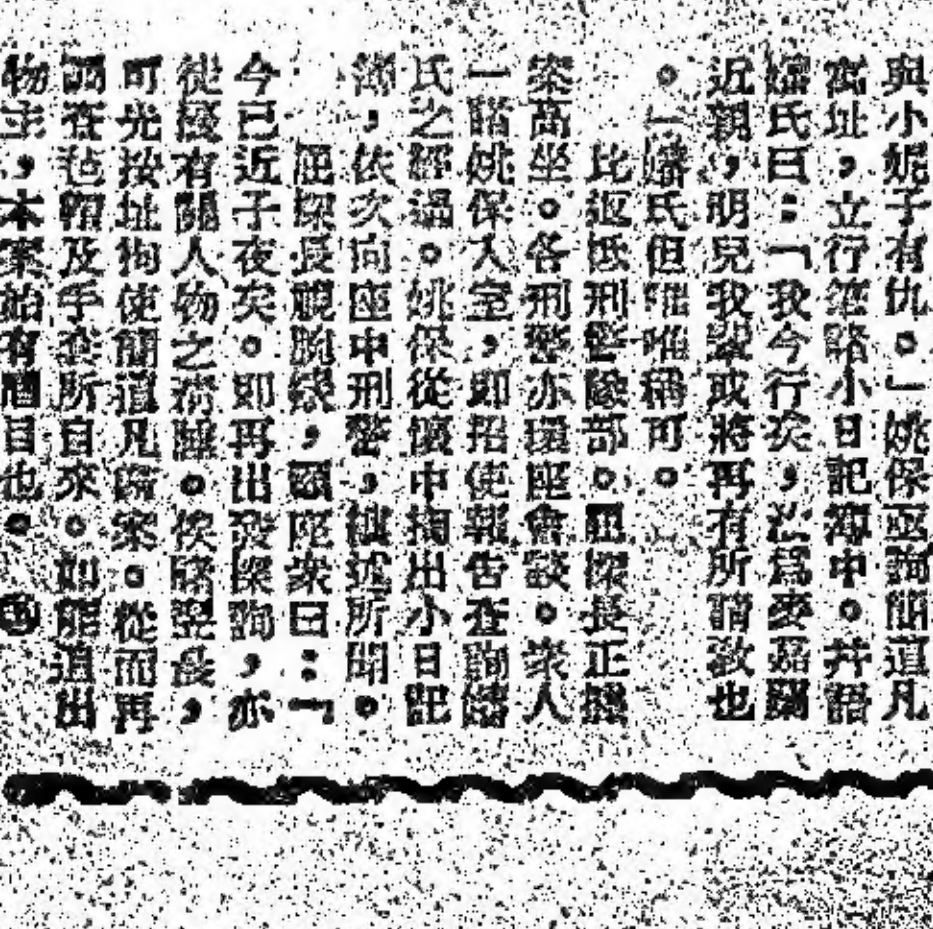 與小妮子有仇。」姚保亟詢簡道凡
寓址，立行筆諸小日記簿中。并語
嬸氏曰：「我今行矣，爲麥嘉
近親，明兒我或將再有所請教也
。」嬸氏但唯唯稱可。
比返抵刑警隊部。屈探長正據
案高坐。各刑警亦環座會談。衆人
一睹姚保入室，卽招使報告查詢嬸
氏之經過。姚保從懷中掏出小日記
簿，依次向座中刑警，述所聞。
屈探長視腕錶，顧座衆曰：「
今已近子夜矣。卽再出發探詢，亦
徒擾有關人物之清睡。俟諸翌晨，
可先按址拘使簡道凡歸案。從而再
調查毡帽及手套所自來。如能追出
物主，本案始有眉目也。